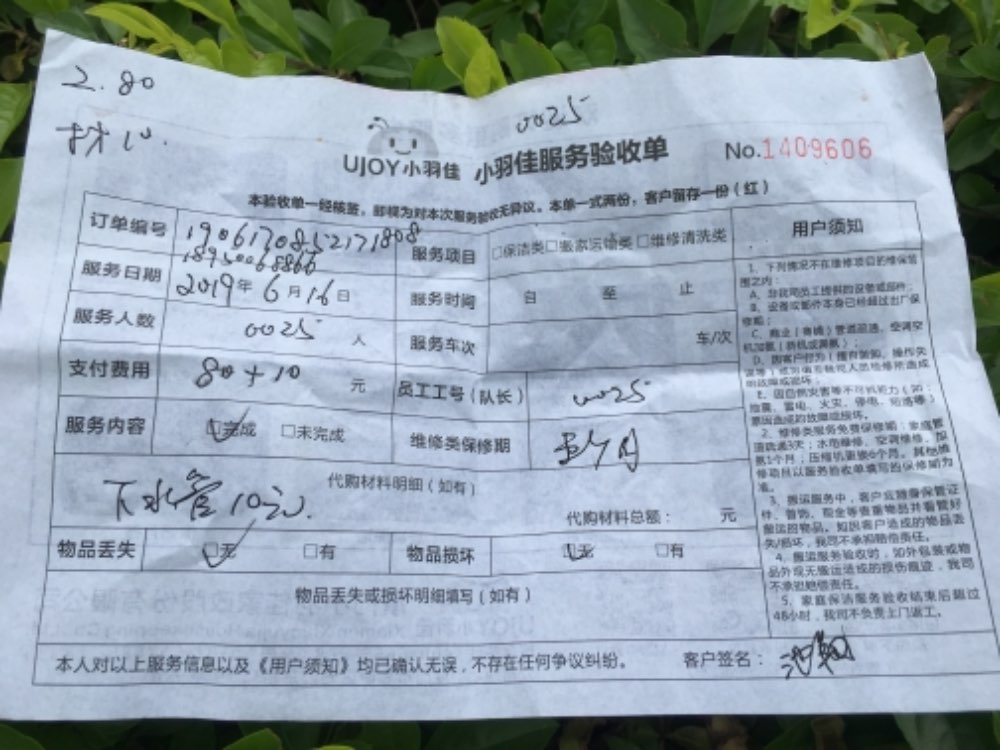 2.80
0025
材10.
UJOY小羽佳 小羽佳服务验收单 No.1409606
本验收单一经核签，即视为对本次服务验收无异议。本单一式两份，客户留存一份（红）
订单编号 1906170852171808
18950068866
服务项目 □保洁类□搬家运输类□维修清洗类
服务日期 2019年6月16日 服务时间 自 至 止
服务人数 0025 人 服务车次 车/次
支付费用 80+10 元 员工工号（队长） 0025
服务内容 ☑完成 □未完成 维修类保修期 个月
代购材料明细（如有）
下水管10元.
代购材料总额： 元
物品丢失 ☑无 □有 物品损坏 ☑无 □有
物品丢失或损坏明细填写（如有）
本人对以上服务信息以及《用户须知》均已确认无误，不存在任何争议纠纷。 客户签名：
用户须知
1、下列情况不在维修项目的维保范
围之内：
A、非我司员工提供的设备或部件；
B、设备或部件本身已经超过出厂保
修期；
C、商业（粤嶠）管道疏通、空调空
机加氟（拆机或漏氟）；
D、因客户行为（擅自装卸、操作失
E、因自然灾害等不可抗力（如：
地震、雷电、火灾、停电、短路等）
原因造成的故障或损坏。
2、维修类服务免费保修期：家庭管
道疏通3天；水电维修、空调维修、加
氟1个月；压缩机更换6个月。其他维
修项目以服务验收单填写的保修期为
准。
3、搬运服务中，客户应随身保管证
件、首饰、现金等贵重物品并看管好
搬运的物品。如因客户造成的物品丢
失/损坏，我司不承担赔偿责任。
4、搬运服务验收时，如外包装或物
品外观无搬运造成的损伤痕迹，我司
不承担赔偿责任。
5、家庭保洁服务验收结束后超过
48小时，我司不负责上门返工。